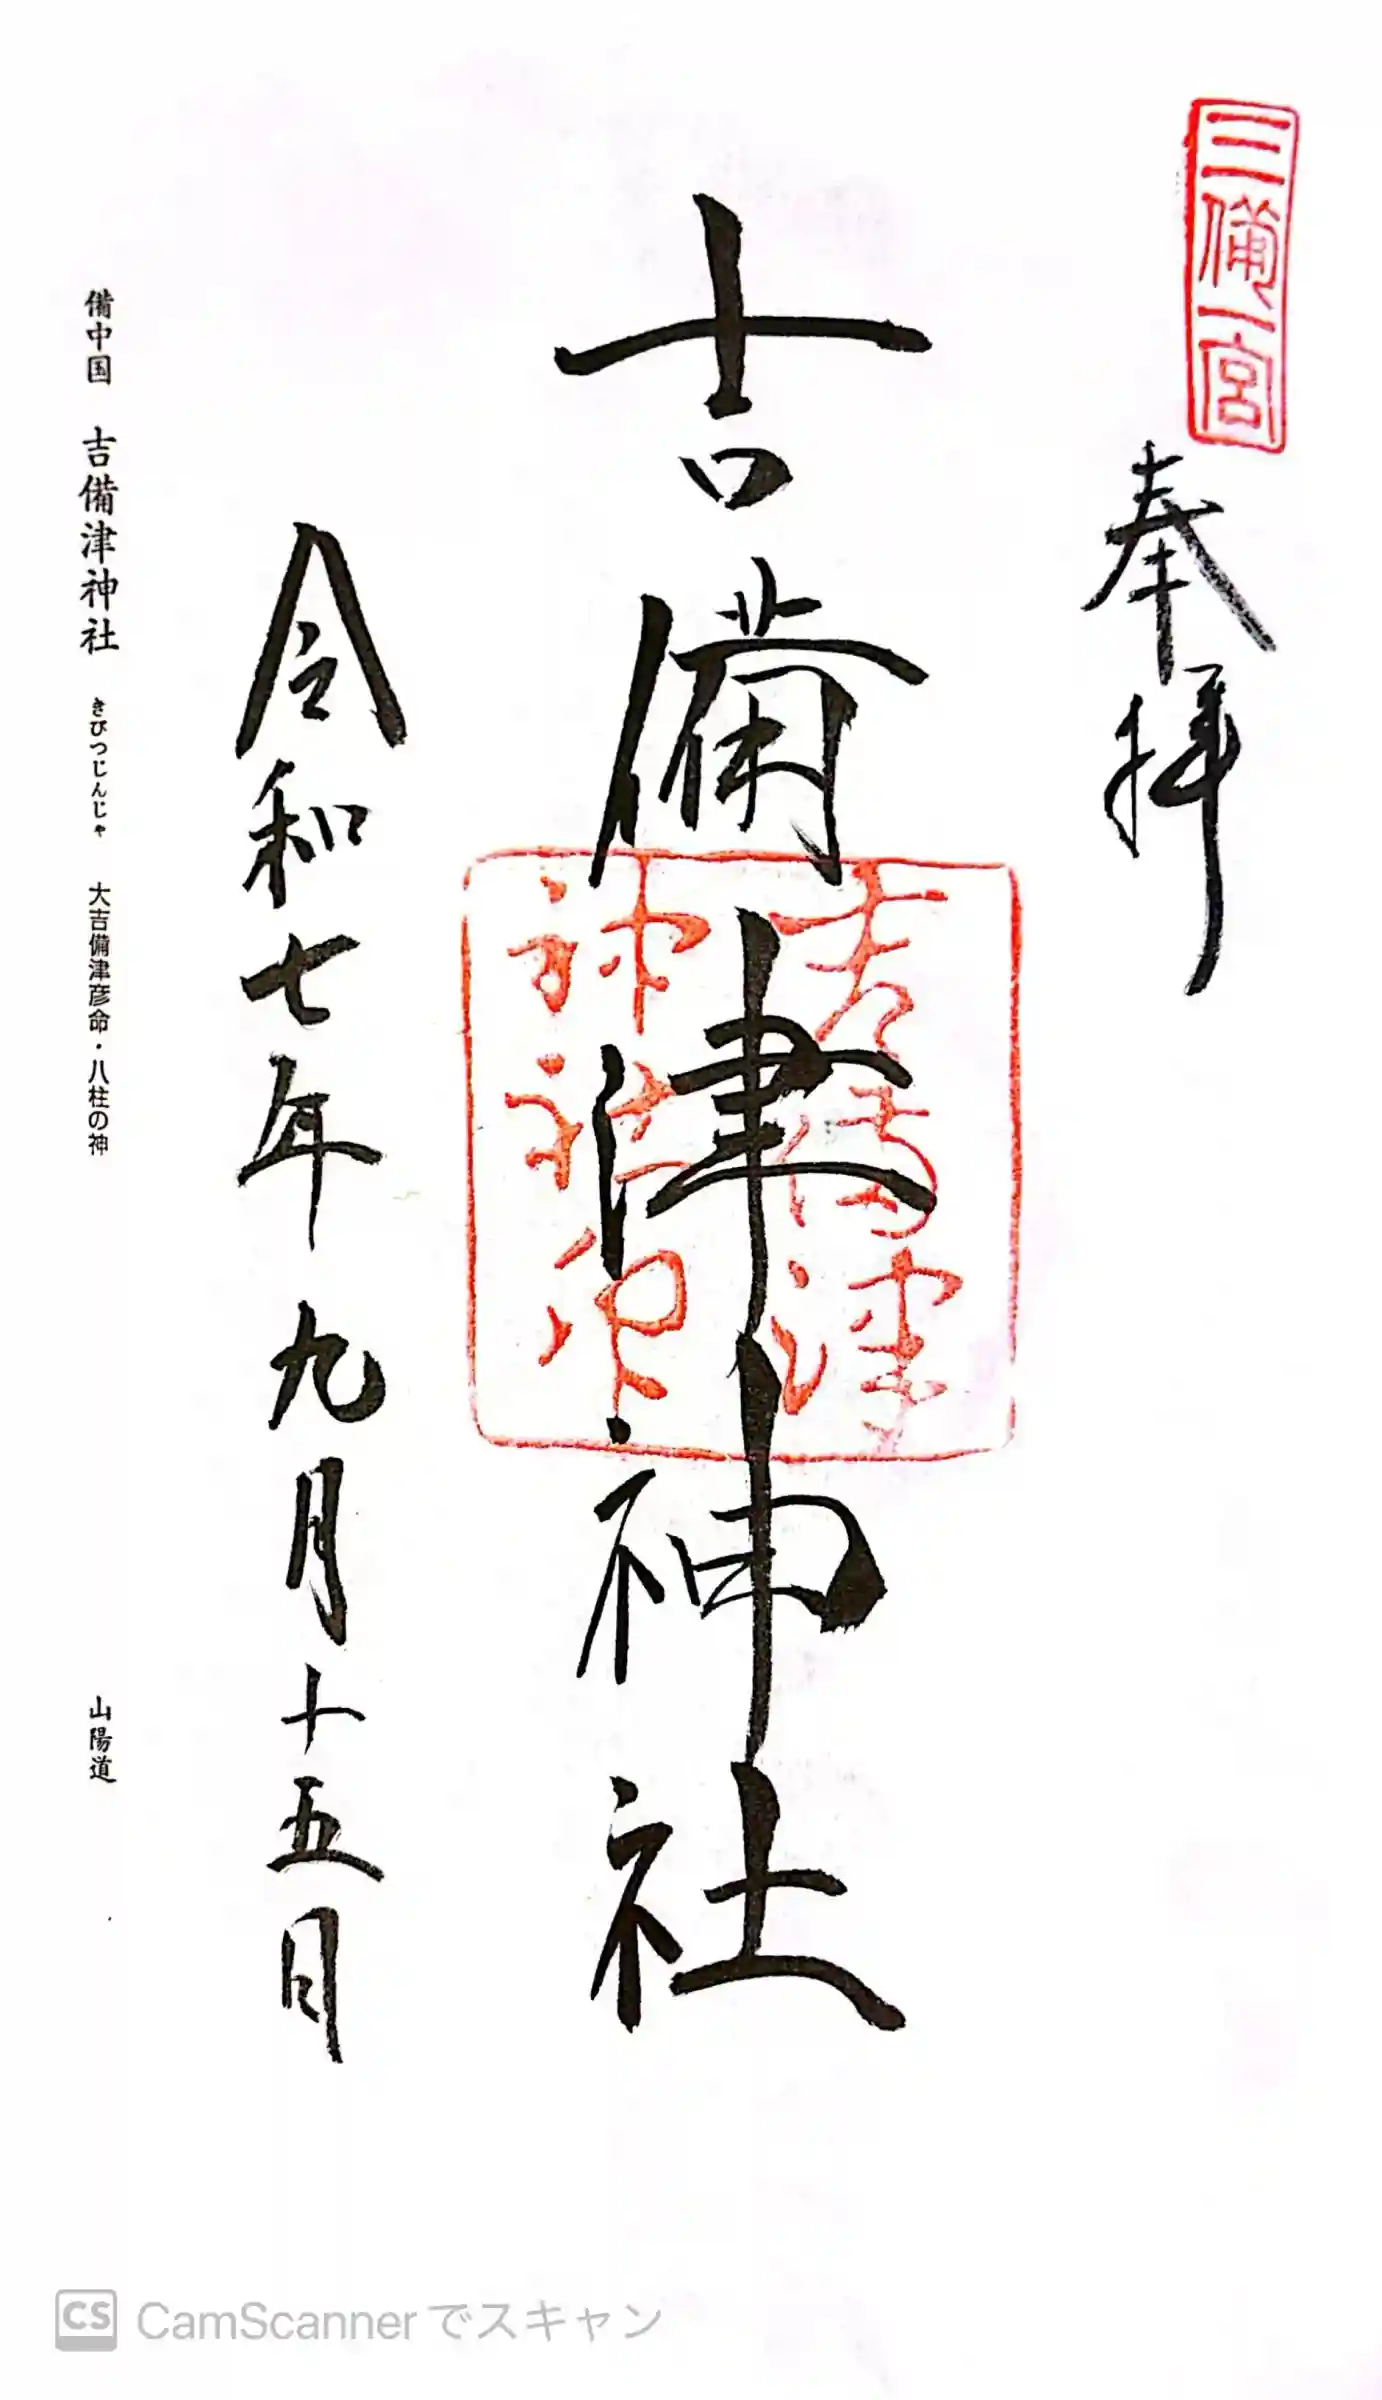 三備一宮
奉拝
吉備津神社
吉備津
神社印
令和七年九月十五日
備中国 吉備津神社 きびつじんじゃ 大吉備津彦命・八柱の神 山陽道
CS CamScannerでスキャン